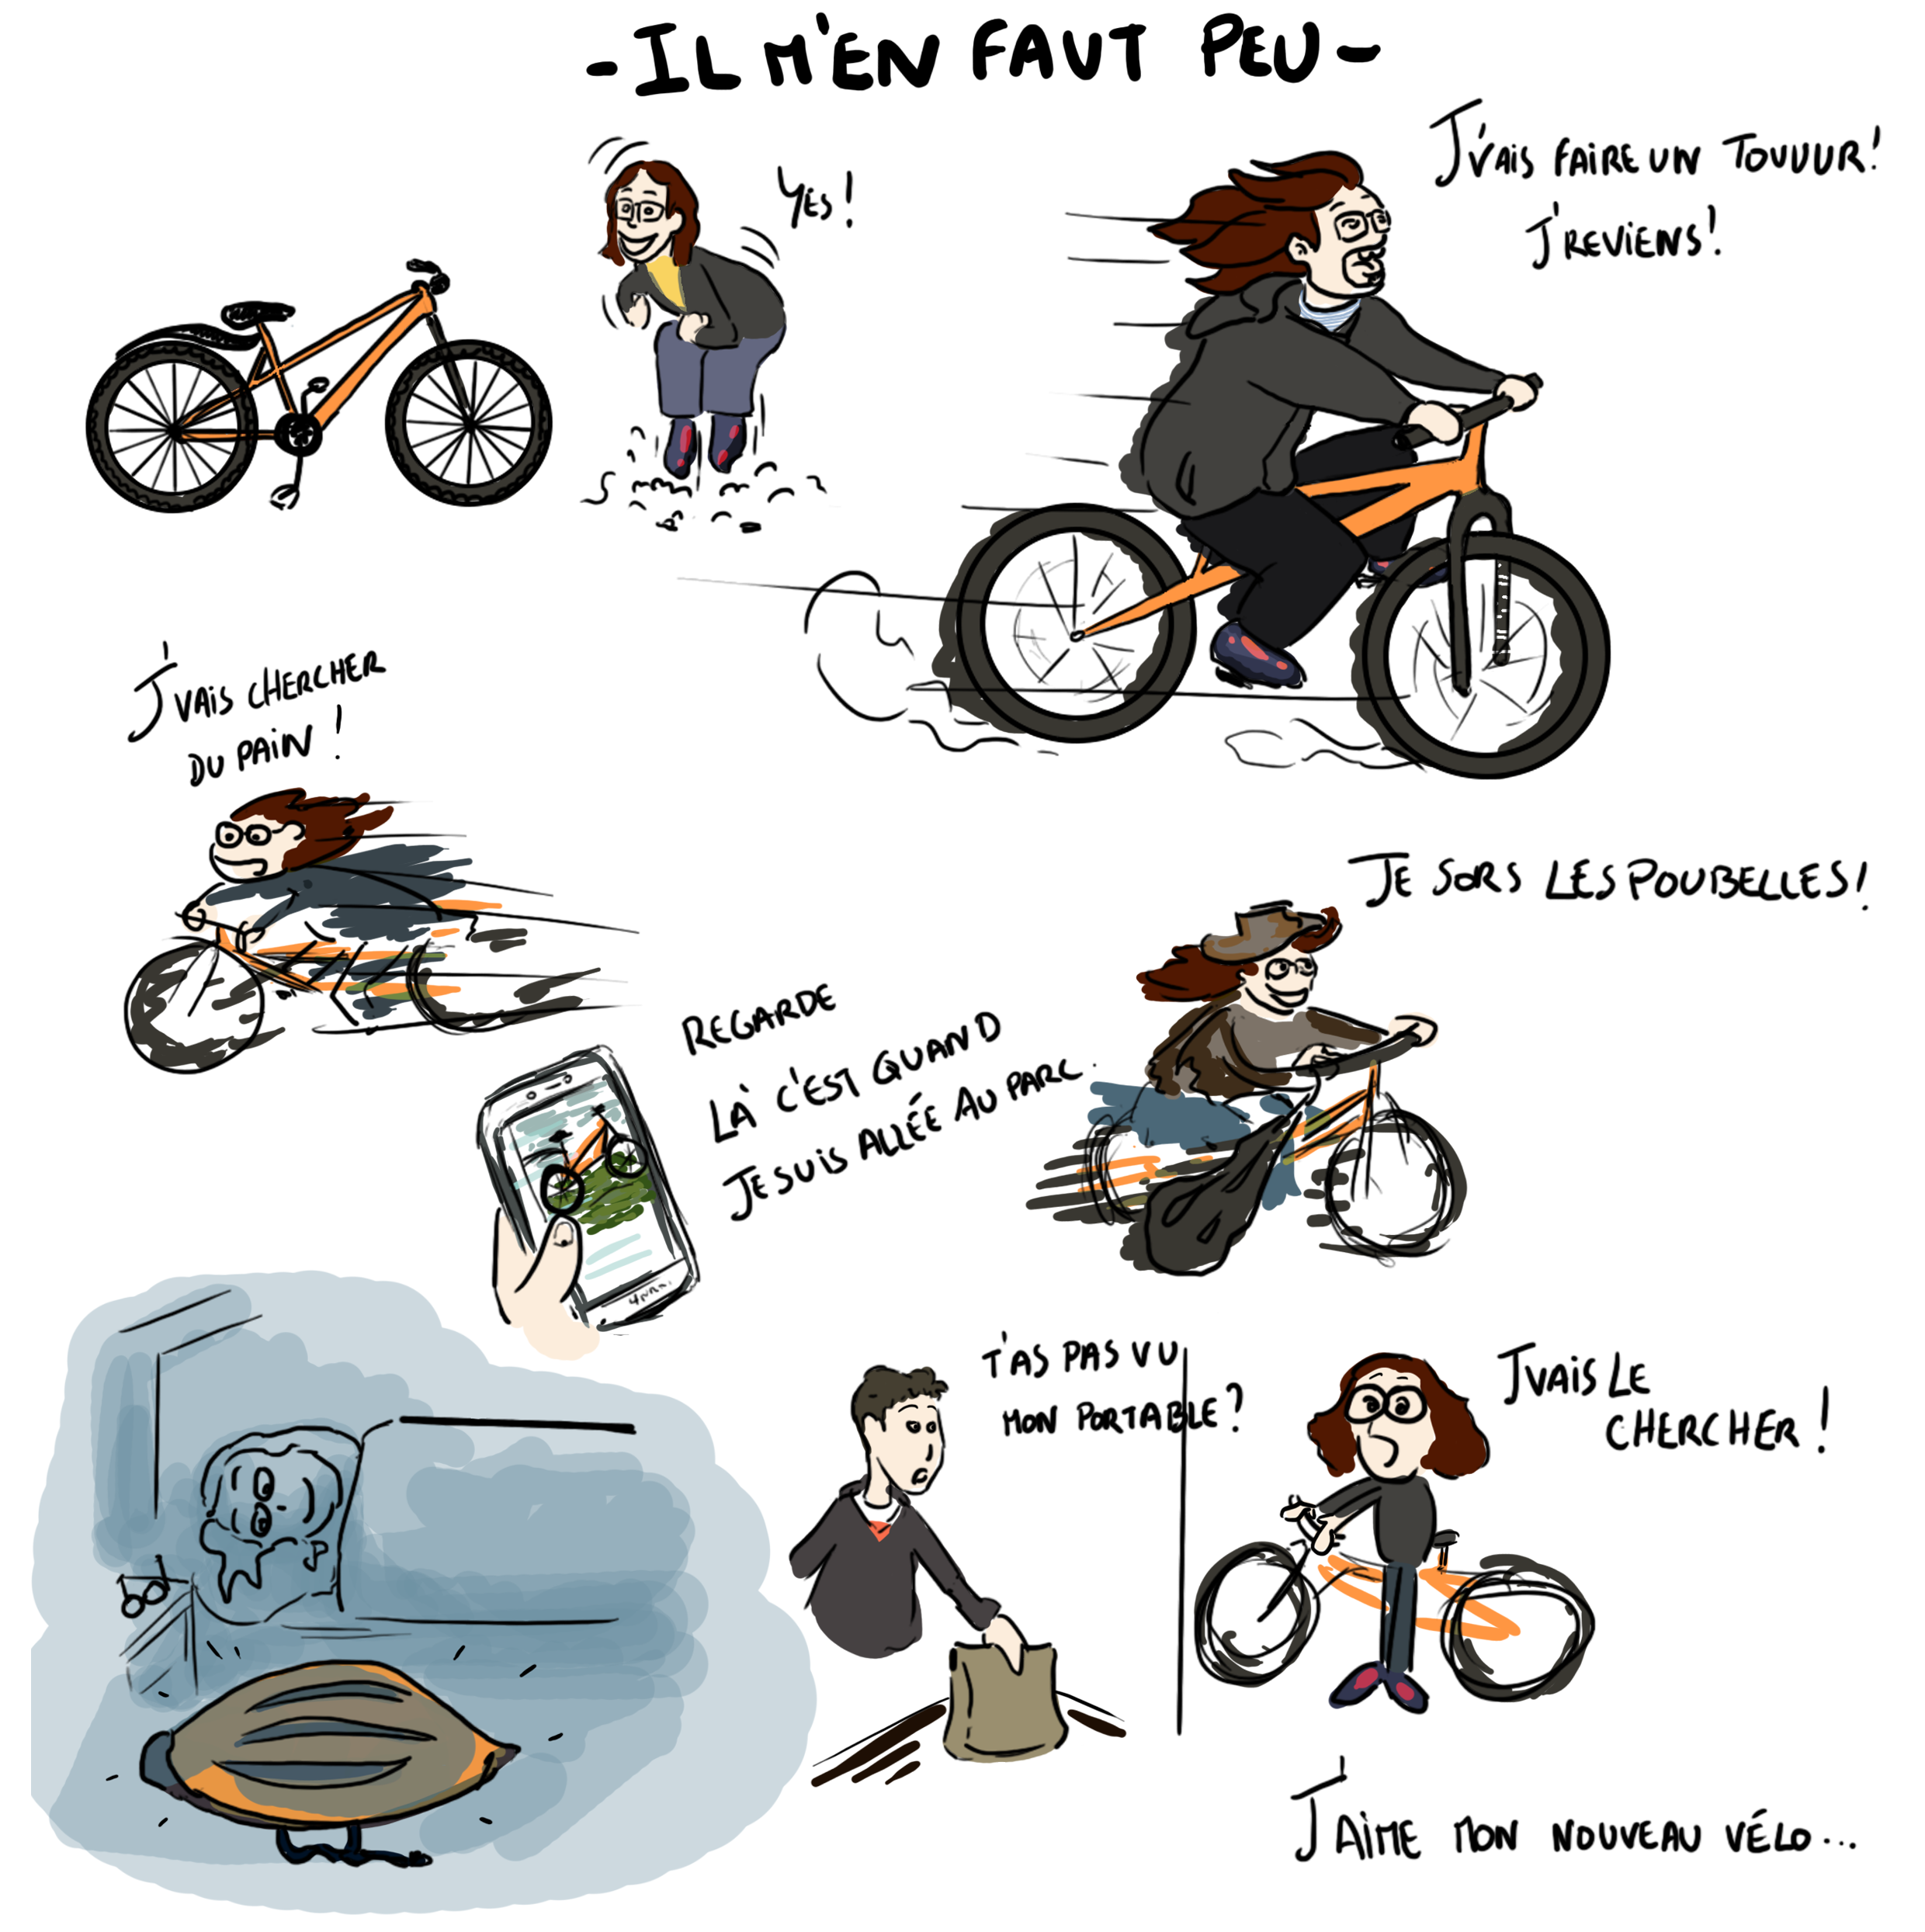 -IL M'EN FAUT PEU-
YES!
J'VAIS FAIRE UN TOUUUR!
J'REVIENS!
J'VAIS CHERCHER
DU PAIN!
JE SORS LES POUBELLES!
REGARDE
LÀ C'EST QUAND
JE SUIS ALLÉE AU PARC.
T'AS PAS VU
MON PORTABLE?
JVAIS LE
CHERCHER!
J'AIME MON NOUVEAU VÉLO...